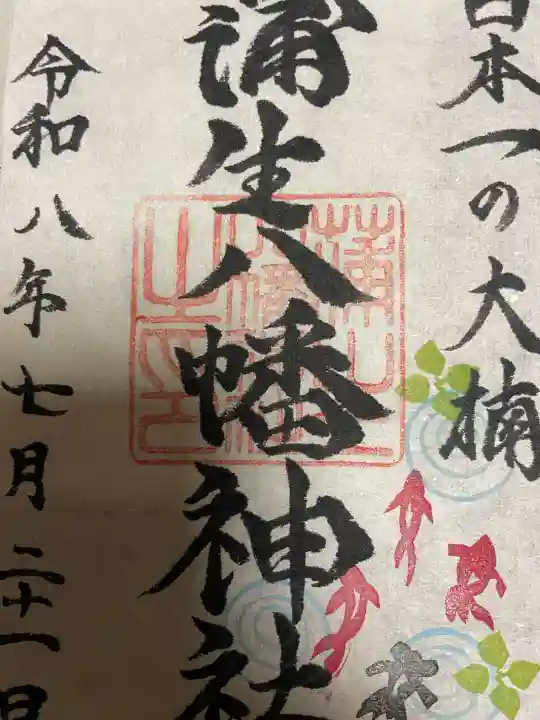 日本一の大楠
蒲生八幡神社
令和八年七月二十一日